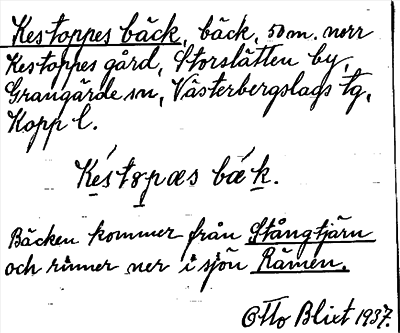 Kestoppes bäck, bäck, 50 m. norr
Kestoppes gård, Storslätten by,
Grangärde sn, Västerbergslags tg,
Kopp l.
Késtɷpæs bǽk.
Bäcken kommer från Stångtjärn
och rinner ner i sjön Rämen.
Otto Blixt 1937.